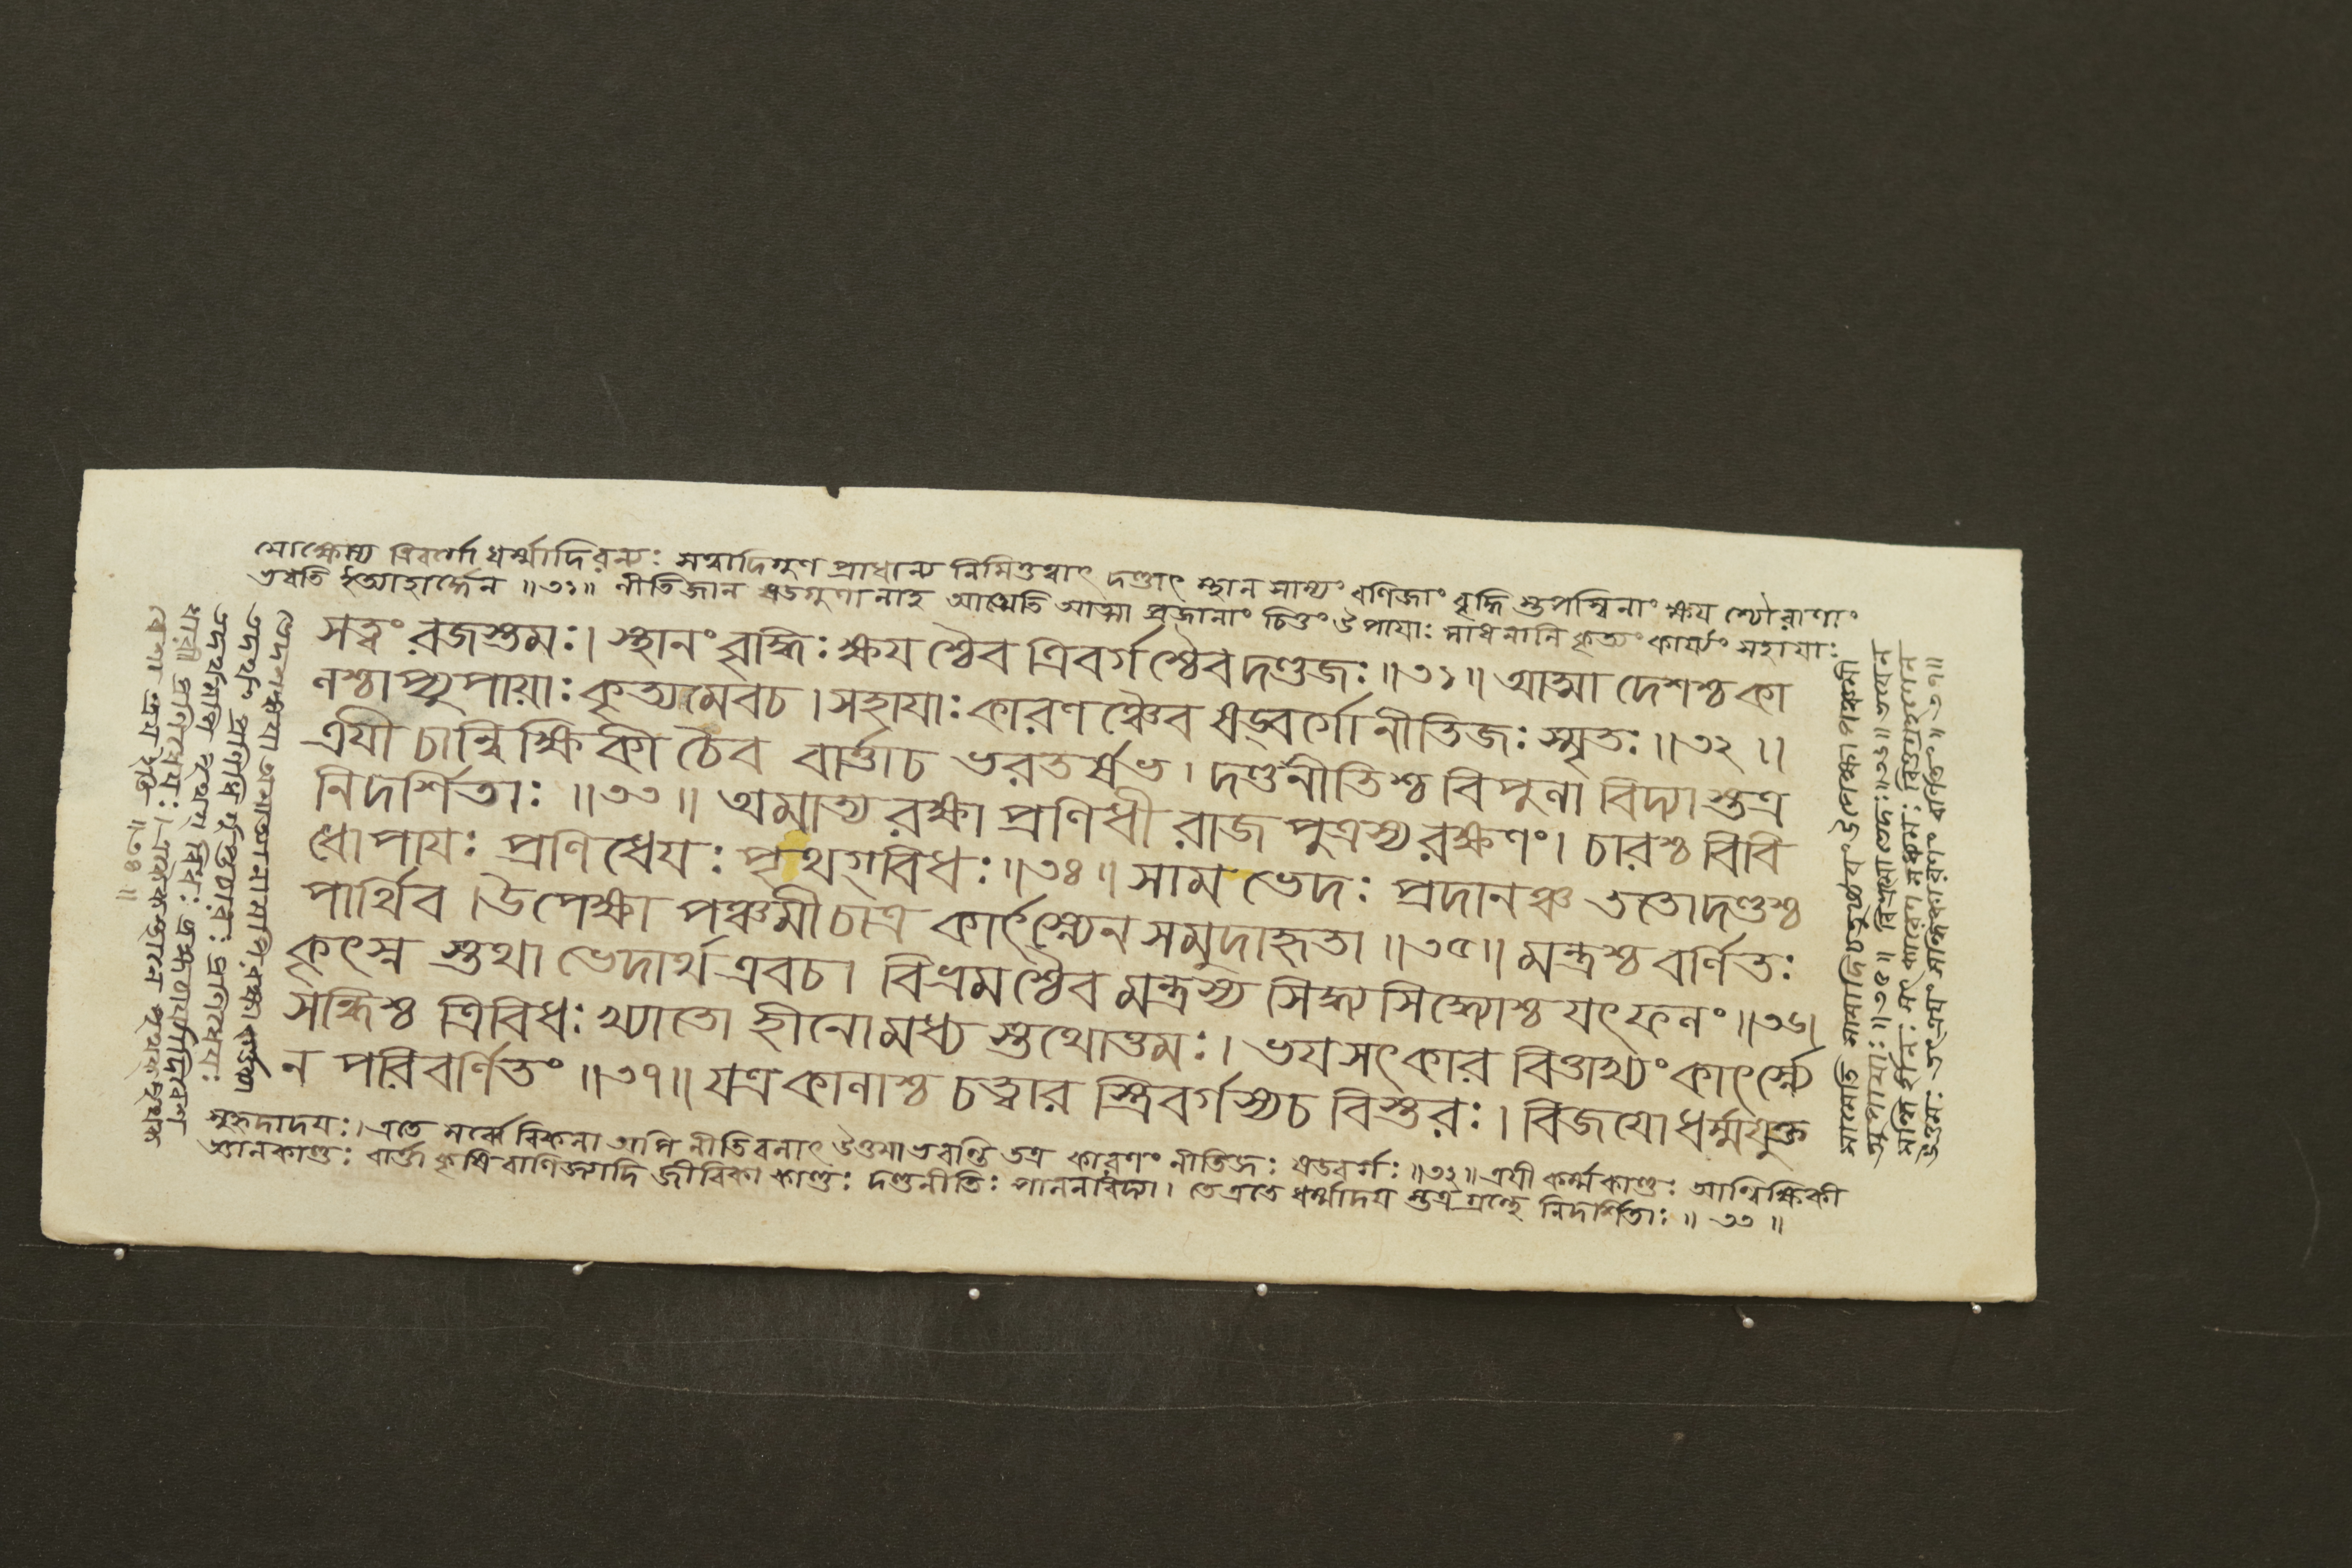 মোক্ষোস্য ত্রিবর্গো ধর্ম্মাদিরন্যঃ সত্বাদিগুণ প্রাধান্য নিমিত্তত্বাৎ দণ্ডাৎ স্থান সাম্যং বণিজাং বৃদ্ধি স্তপস্বিনাং ক্ষয় শ্চৌরাণাং
ভবতি ইত্যাহার্দ্ধেন ॥৩১॥ নীতিজান ষড্গুণানাহ আত্মেতি আত্মা প্রজানাং চিত্তং উপায়াঃ সাধনানি কৃত্যং কার্য্যং সহায়াঃ
সত্ত্বং রজস্তমঃ। স্থানং বৃদ্ধিঃ ক্ষয় শ্চৈব ত্রিবর্গ শ্চৈব দণ্ডজঃ ॥৩১॥ আত্মা দেশশ্চ কা
লশ্চাপ্যুপায়াঃ কৃত্যমেবচ । সহায়াঃ কারণ ঞ্চৈব ষড্বর্গো নীতিজঃ স্মৃতঃ ॥৩২॥
ত্রয়ী চান্বিক্ষিকী চৈব বার্ত্তাচ ভরতর্ষভ । দণ্ডনীতিশ্চ বিপুলা বিদ্যা স্তত্র
নিদর্শিতাঃ ॥৩৩॥ অমাত্য রক্ষা প্রণিধী রাজ পুত্রস্য রক্ষণং । চারশ্চ বিবি
ধোপায়ঃ প্রণিধেয়ঃ পৃথগ্বিধঃ ॥৩৪॥ সাম ভেদঃ প্রদানঞ্চ ততোদণ্ডশ্চ
পার্থিব । উপেক্ষা পঞ্চমী চাত্র কার্ৎস্ন্যেন সমুদাহৃতা ॥৩৫॥ মন্ত্রশ্চ বর্ণিতঃ
কৃৎস্ন স্তথা ভেদার্থ এবচ । বিভ্রম শ্চৈব মন্ত্রস্য সিদ্ধ্য সিদ্ধ্যোশ্চ যৎফলং ॥৩৬॥
সন্ধিশ্চ ত্রিবিধঃ খ্যাতো হীনোমধ্য স্তথোত্তমঃ । ভয়সৎকার বিত্তাখ্যং কার্ৎস্ন্যে
ন পরিবর্ণিতং ॥৩৭॥ যাত্রকালাশ্চ চত্বার স্ত্রিবর্গস্যচ বিস্তরঃ । বিজয়ো ধর্ম্মযুক্ত
সুহৃদাদয়ঃ । এতে সর্ব্বে বিফলা অপি নীতিবলাৎ উত্তমা ভবন্তি তত্র কারণং নীতিজঃ ষড্বর্গঃ ॥৩২॥ ত্রয়ী কর্ম্মকাণ্ডঃ আন্বিক্ষিকী
জ্ঞানকাণ্ডঃ বার্ত্তা কৃষি বাণিজ্যাদি জীবিকা কাণ্ডঃ দণ্ডনীতিঃ পালনবিদ্যা । তেএতে ধর্ম্মাদয় স্তত্র গ্রন্থে নিদর্শিতাঃ ॥ ৩৩ ॥
সামেতি সামাদিচতুষ্টয়ং উপেক্ষা পঞ্চমী
ভেদঃ ॥৩৬॥
সন্ধি হীনঃ মধ্যমঃ
॥ ৩৭॥
রক্ষা
প্রণিধেয়াঃ
পৃথক্পৃথক্
॥৩৪॥